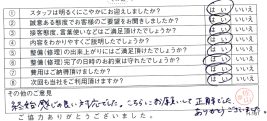 ① スタッフは明るくにこやかにお迎えしましたか? はい いいえ
② 誠意ある態度でお客様のご要望をお聞きしましたか? はい いいえ
③ 接客態度、言葉使いなどはご満足頂けたでしょうか? はい いいえ
④ 内容をわかりやすくご説明したでしょうか? はい いいえ
⑤ 整備(修理)の出来上がりにはご満足頂けたでしょうか? はい いいえ
⑥ 整備(修理)完了の日時のお約束は守れたでしょうか? はい いいえ
⑦ 費用はご納得頂けましたか? はい いいえ
⑧ 次回も当社をご利用頂けますか? はい いいえ
その他のご意見
終始感じの良い対応でした。こちらにお願いして正解でした。
ありがとうございました。
ご協力ありがとうございました。